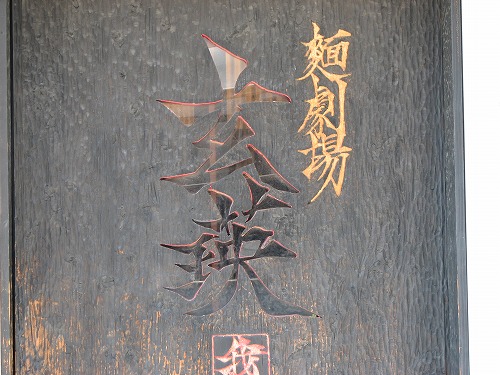 麺劇場
玄瑛
我